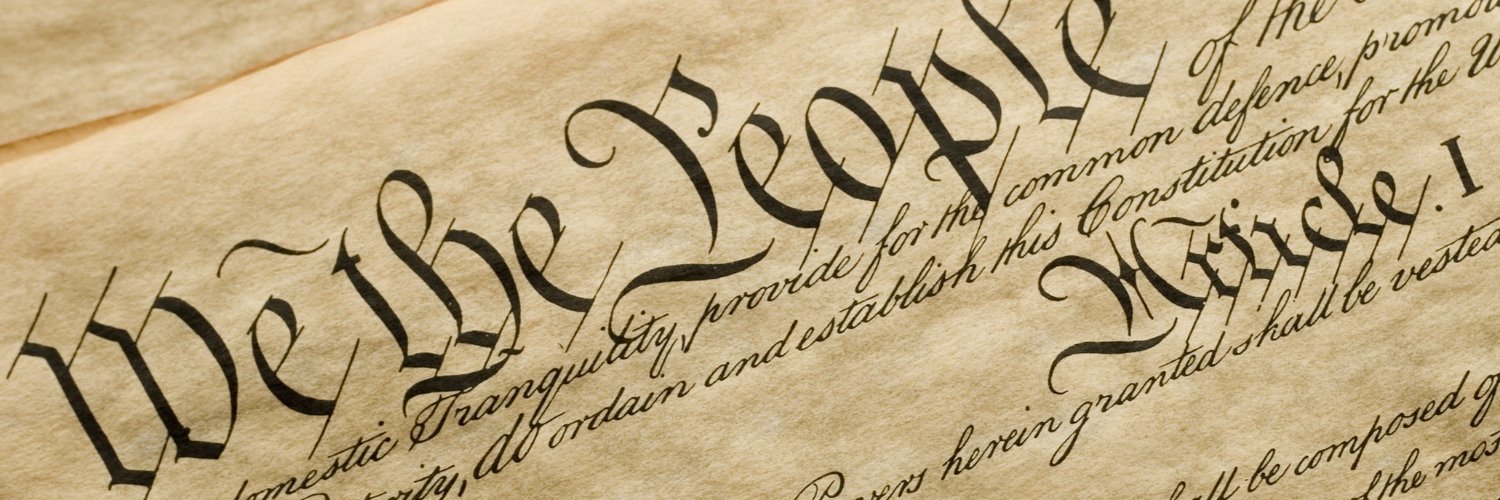 We the People of the
domestic Tranquility, provide for the common defence, promo
do ordain and establish this Constitution for the U
Article. I
herein granted shall be vested
be composed of
of the mos